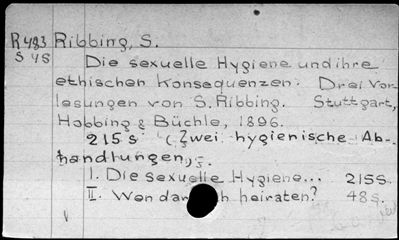 R483 Ribbing, S.
S 48 Die sexuelle Hygiene und ihre
ethischen Konsequenzen. Drei Vor-
lesungen von S. Ribbing. Stuttgart,
Hobbing & Büchle, 1896.
215 s (Zwei hygienische Ab-
handlungen,
I. Die sexuelle Hygiene... 215s.
II. Wan dar ch heiraten? 48s.